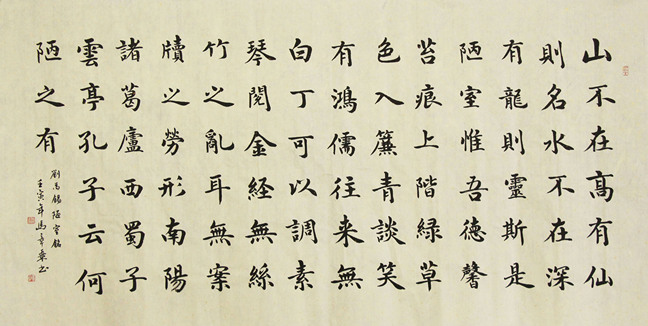 山不在高有仙
則名水不在深
有龍則靈斯是
陋室惟吾德馨
苔痕上階緑草
色入簾青談笑
有鴻儒往来無
白丁可以調素
琴閲金経無絲
竹之亂耳無案
牘之勞形南陽
諸葛廬西蜀子
雲亭孔子云何
陋之有
劉禹錫陋室銘
壬寅年